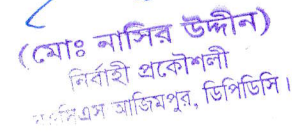 (মোঃ নাসির উদ্দীন)
নির্বাহী প্রকৌশলী
আজিমপুর, ডিপিডিসি।